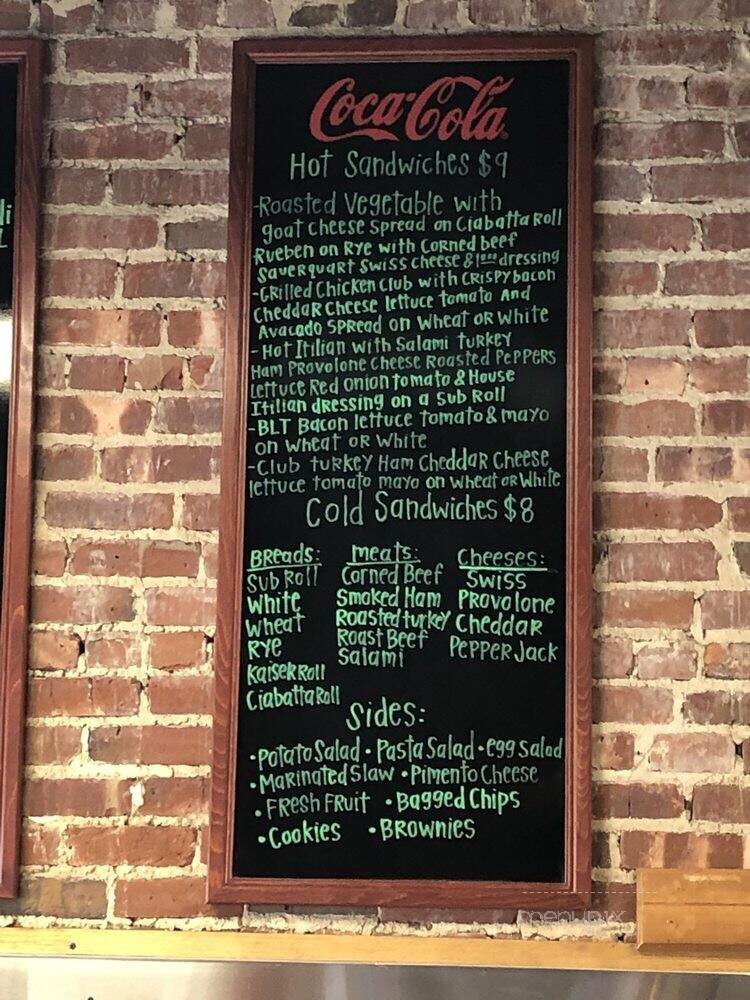 Coca-Cola
Hot Sandwiches $9
-Roasted Vegetable with
goat cheese spread on Ciabatta Roll
Rueben on Rye with corned beef
Sauerquart Swiss cheese & dressing
-Grilled Chicken Club with crispy bacon
Cheddar Cheese lettuce tomato And
Avacado spread on wheat or white
-Hot Itilian with Salami turkey
Ham Provolone Cheese Roasted Peppers
Lettuce Red onion tomato & House
Itilian dressing on a Sub Roll
-BLT Bacon lettuce tomato & mayo
on wheat or white
-Club turkey Ham Cheddar Cheese
lettuce tomato mayo on wheat or white
Cold Sandwiches $8
Breads:
Sub Roll
White
Wheat
Rye
Kaiser Roll
Ciabatta Roll
Meats:
Corned Beef
Smoked Ham
Roasted turkey
Roast Beef
Salami
Cheeses:
Swiss
Provolone
Cheddar
Pepper Jack
Sides:
•Potato Salad •Pasta Salad •egg salad
•Marinated Slaw •Pimento Cheese
•Fresh Fruit •Bagged Chips
•Cookies •Brownies
menupix